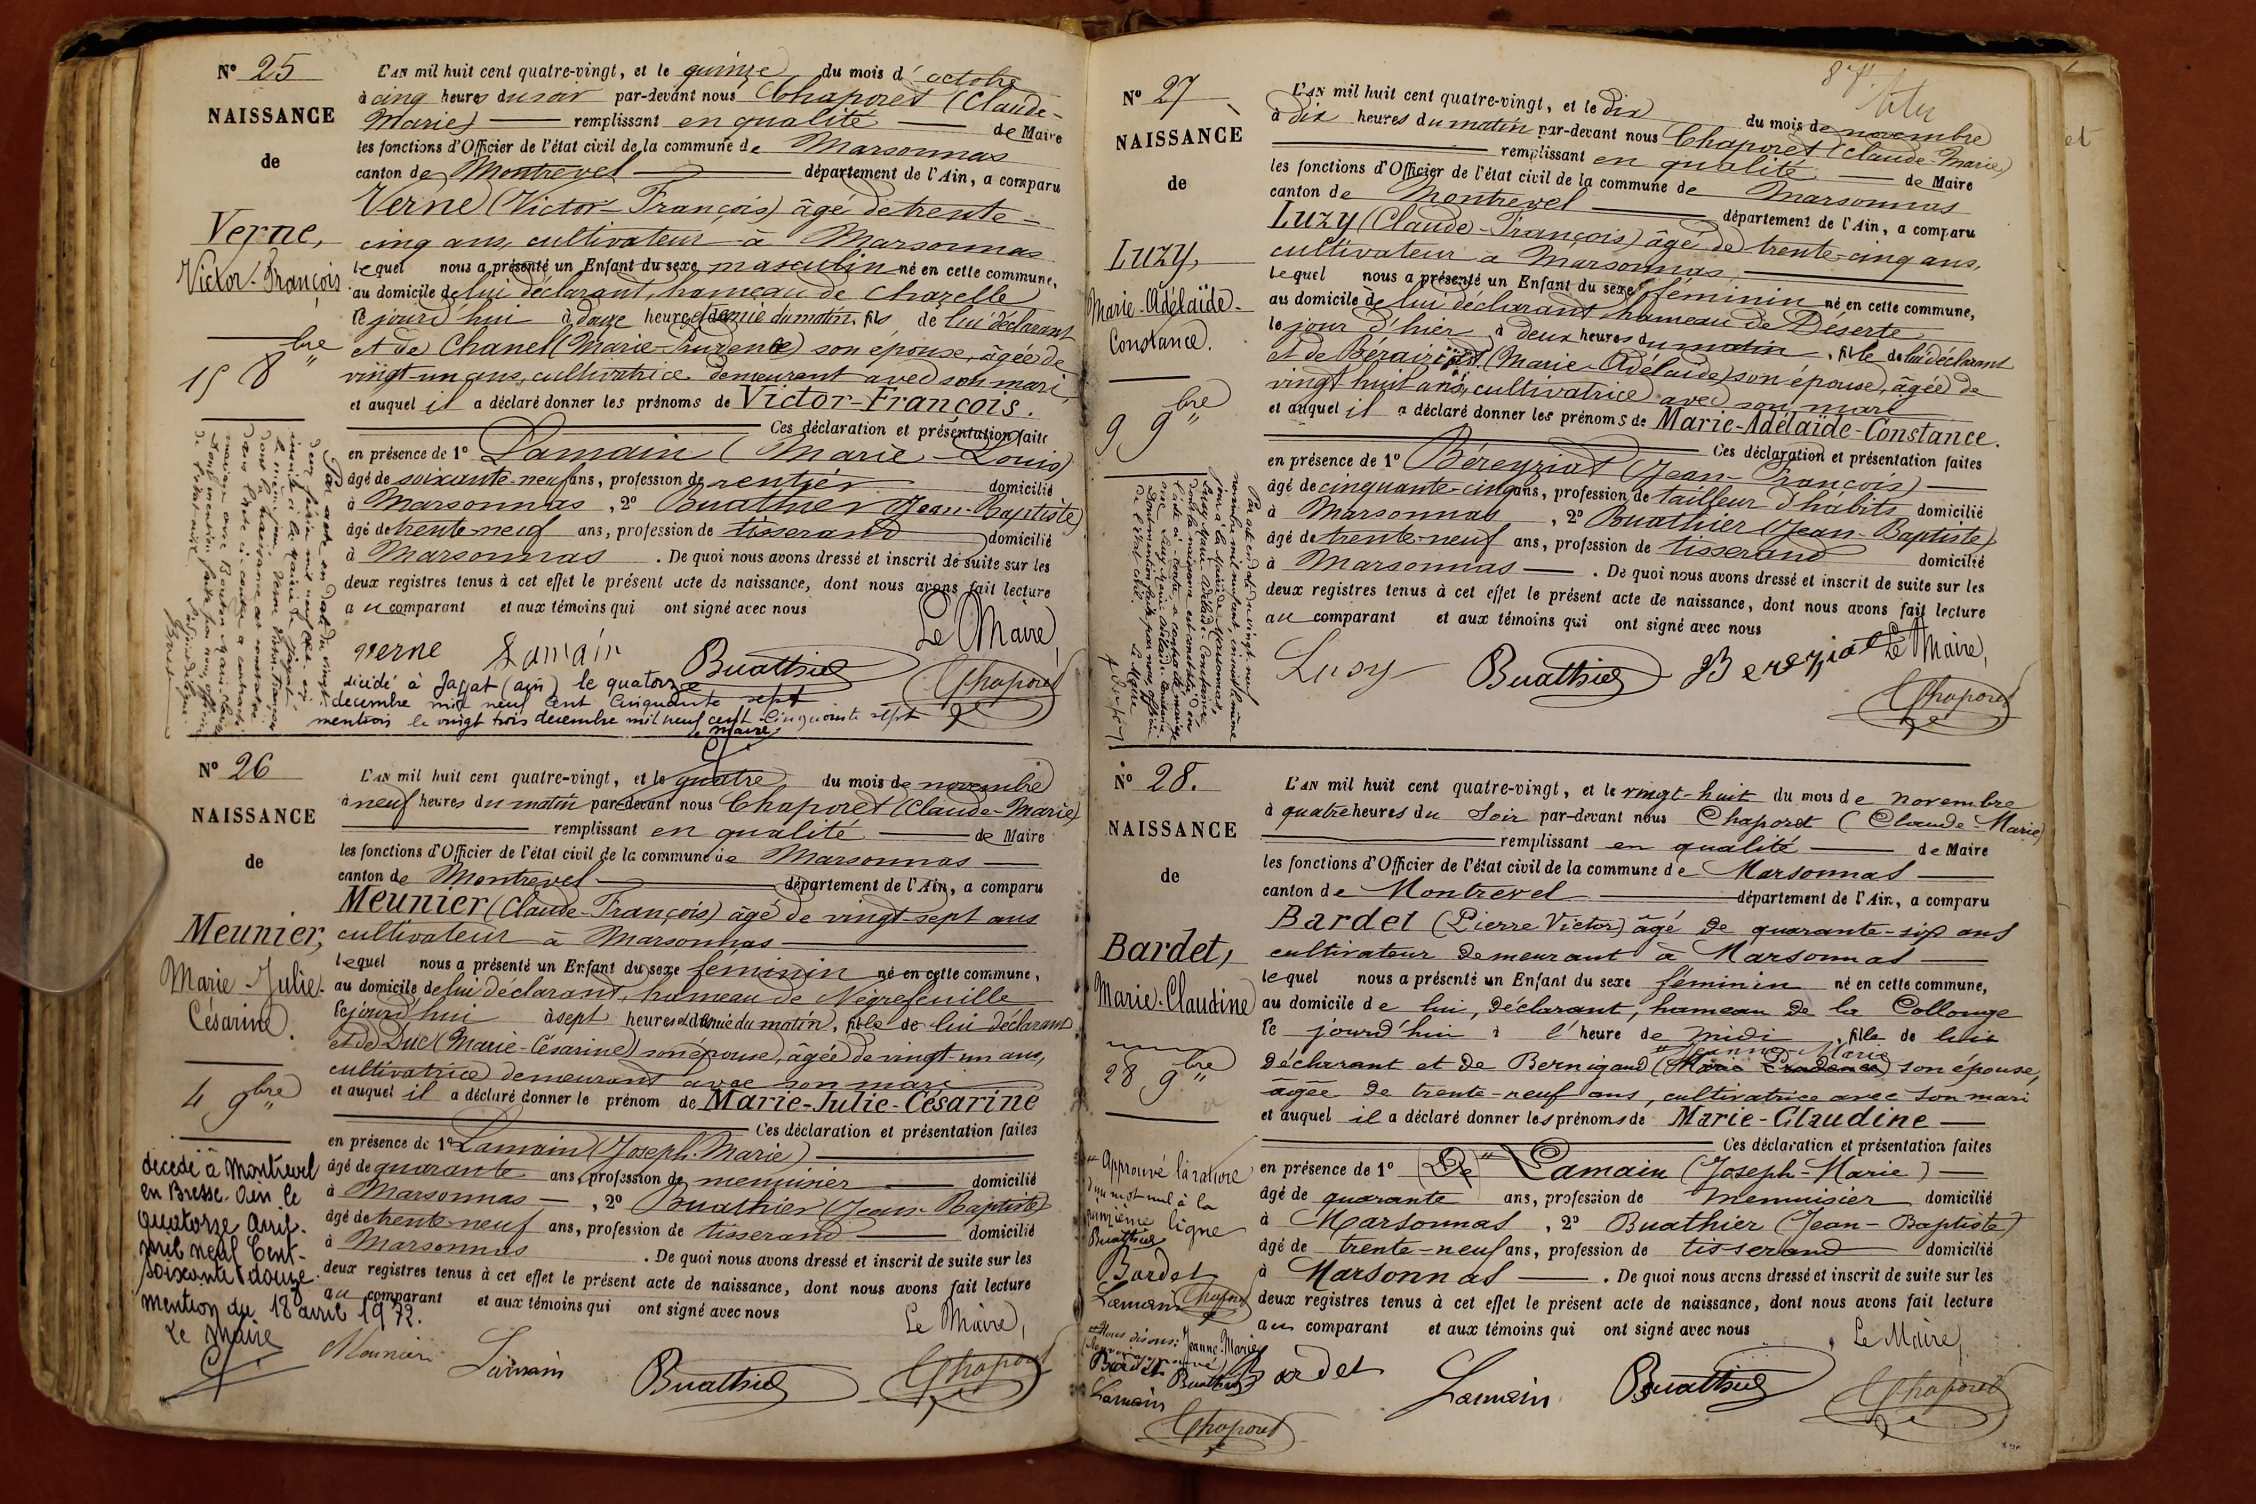 N° 25
NAISSANCE
de
Verne,
Victor-François
15 8bre
L'AN mil huit cent quatre-vingt, et le quinze du mois d'octobre
à cinq heures du soir par-devant nous Chaporet (Claude-
Marie) remplissant en qualité de Maire
les fonctions d'Officier de l'état civil de la commune de Marsonnas
canton de Montrevel département de l'Ain, a comparu
Verne (Victor-François) âgé de trente-
cinq ans, cultivateur à Marsonnas
lequel nous a présenté un Enfant du sexe masculin né en cette commune,
au domicile de lui déclarant, hameau de Chazelle
le jourd'hui à douze heures et demie du matin, fils de lui déclarant
et de Chanel (Marie-Prudence) son épouse, âgée de
vingt-un ans, cultivatrice demeurant avec son mari,
et auquel il a déclaré donner les prénoms de Victor-François.
Ces déclaration et présentation faites
en présence de 1° Lamain (Marie-Louis)
âgé de soixante-neuf ans, profession de rentier domicilié
à Marsonnas, 2° Buathier (Jean-Baptiste)
âgé de trente-neuf ans, profession de tisserand domicilié
à Marsonnas. De quoi nous avons dressé et inscrit de suite sur les
deux registres tenus à cet effet le présent acte de naissance, dont nous avons fait lecture
au comparant et aux témoins qui ont signé avec nous
Le Maire,
Verne Lamain Buathier Chaporet
décédé à Jayat (ain) le quatorze
décembre mil neuf cent cinquante sept
mention le vingt trois décembre mil neuf cent cinquante sept
le maire
N° 26
NAISSANCE
de
Meunier,
Marie-Julie-
Césarine.
4 9bre
L'AN mil huit cent quatre-vingt, et le quatre du mois de novembre
à neuf heures du matin par-devant nous Chaporet (Claude-Marie)
remplissant en qualité de Maire
les fonctions d'Officier de l'état civil de la commune de Marsonnas
canton de Montrevel département de l'Ain, a comparu
Meunier (Claude-François) âgé de vingt-sept ans
cultivateur à Marsonnas
lequel nous a présenté un Enfant du sexe féminin né en cette commune,
au domicile de lui déclarant, hameau de Négrefeuille
le jourd'hui à sept heures et demie du matin, fille de lui déclarant
et de Duc (Marie-Césarine) son épouse, âgée de vingt-un ans,
cultivatrice demeurant avec son mari
et auquel il a déclaré donner le prénom de Marie-Julie-Césarine
Ces déclaration et présentation faites
en présence de 1° Lamain (Joseph-Marie)
âgé de quarante ans, profession de menuisier domicilié
à Marsonnas, 2° Buathier (Jean-Baptiste)
âgé de trente-neuf ans, profession de tisserand domicilié
à Marsonnas. De quoi nous avons dressé et inscrit de suite sur les
deux registres tenus à cet effet le présent acte de naissance, dont nous avons fait lecture
au comparant et aux témoins qui ont signé avec nous
Le Maire,
Meunier Lamain Buathier Chaporet
décédé à Montrevel
en Bresse. Ain le
quatorze avril.
mil neuf Cent-
soixante & douze.
mention du 18 avril 1972.
Le Maire
N° 27
NAISSANCE
de
Luzy,
Marie-Adélaïde-
Constance.
9 9bre
L'AN mil huit cent quatre-vingt, et le dix du mois de novembre
à dix heures du matin par-devant nous Chaporet (Claude-Marie)
remplissant en qualité de Maire
les fonctions d'Officier de l'état civil de la commune de Marsonnas
canton de Montrevel département de l'Ain, a comparu
Luzy (Claude-François) âgé de trente-cinq ans,
cultivateur à Marsonnas,
lequel nous a présenté un Enfant du sexe féminin né en cette commune,
au domicile de lui déclarant hameau de Déserte
le jour d'hier à deux heures du matin, fille de lui déclarant
et de (Marie-Adélaïde) son épouse, âgée de
vingt huit ans, cultivatrice avec son mari
et auquel il a déclaré donner les prénoms de Marie-Adélaïde-Constance.
Ces déclaration et présentation faites
en présence de 1° Béreyziat (Jean-François)
âgé de cinquante-cinq ans, profession de tailleur d'habits domicilié
à Marsonnas, 2° Buathier (Jean-Baptiste)
âgé de trente-neuf ans, profession de tisserand domicilié
à Marsonnas. De quoi nous avons dressé et inscrit de suite sur les
deux registres tenus à cet effet le présent acte de naissance, dont nous avons fait lecture
au comparant et aux témoins qui ont signé avec nous
Le Maire,
Luzy Buathier Bereziat Chaporet
N° 28.
NAISSANCE
de
Bardet,
Marie-Claudine
28 9bre
L'AN mil huit cent quatre-vingt, et le vingt-huit du mois de novembre
à quatre heures du soir par-devant nous Chaporet (Claude-Marie)
remplissant en qualité de Maire
les fonctions d'Officier de l'état civil de la commune de Marsonnas
canton de Montrevel département de l'Ain, a comparu
Bardet (Pierre Victor) âgé de quarante-six ans
cultivateur demeurant à Marsonnas
lequel nous a présenté un Enfant du sexe féminin né en cette commune,
au domicile de lui, déclarant, hameau de la Collonge
le jourd'hui à l'heure de midi, fille de lui
Jeanne Marie
déclarant et de Bernigaud (Marie Prudence) son épouse,
âgée de trente-neuf ans, cultivatrice avec son mari
et auquel il a déclaré donner les prénoms de Marie-Claudine
Ces déclaration et présentation faites
en présence de 1° Lamain (Joseph-Marie)
âgé de quarante ans, profession de menuisier domicilié
à Marsonnas, 2° Buathier (Jean-Baptiste)
âgé de trente-neuf ans, profession de tisserand domicilié
à Marsonnas. De quoi nous avons dressé et inscrit de suite sur les
deux registres tenus à cet effet le présent acte de naissance, dont nous avons fait lecture
au comparant et aux témoins qui ont signé avec nous
Le Maire,
Approuvé la rature
d'un mot nul à la
ligne
Buathier
Bardet
Lamain Chaporet
Nous disons: Jeanne-Marie
Bardet Buathier
Lamain
Chaporet
Bardet Lamain Buathier Chaporet